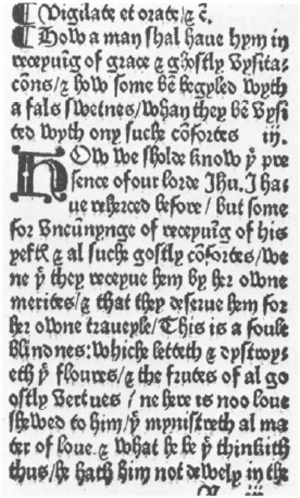 ¶ Vigilate et orate/ ⁊ c̄.
¶ How a man shal haue hym in
receyuīg of grace ⁊ ghostly vysita-
cōns/ ⁊ how some bē begyled wyth
a fals swetnes/ whan they bē vysi
ted wyth ony suche cōfortes iij.
HOw we sholde know yͤ pre
sence of our lorde Jhu. I ha-
ue reherced before / but some
for vncūnynge of receyuīg of his
yeftꝭ ⁊ al suche gostly cōfortes/ we
ne yͭ they receyue hem by her owne
merites/ ⁊ that they deserue hem for
her owne traueyle/ This is a foule
blindnes: whiche letteth ⁊ dystroy-
eth yͤ floures/ ⁊ the frutes of al go
ostly vertues / ne here is noo loue
shewed to him/ yͭ mynistreth al ma
ter of loue. ⁊ what he be yͭ thinkith
thus/ he hath him not dewely in the
iii